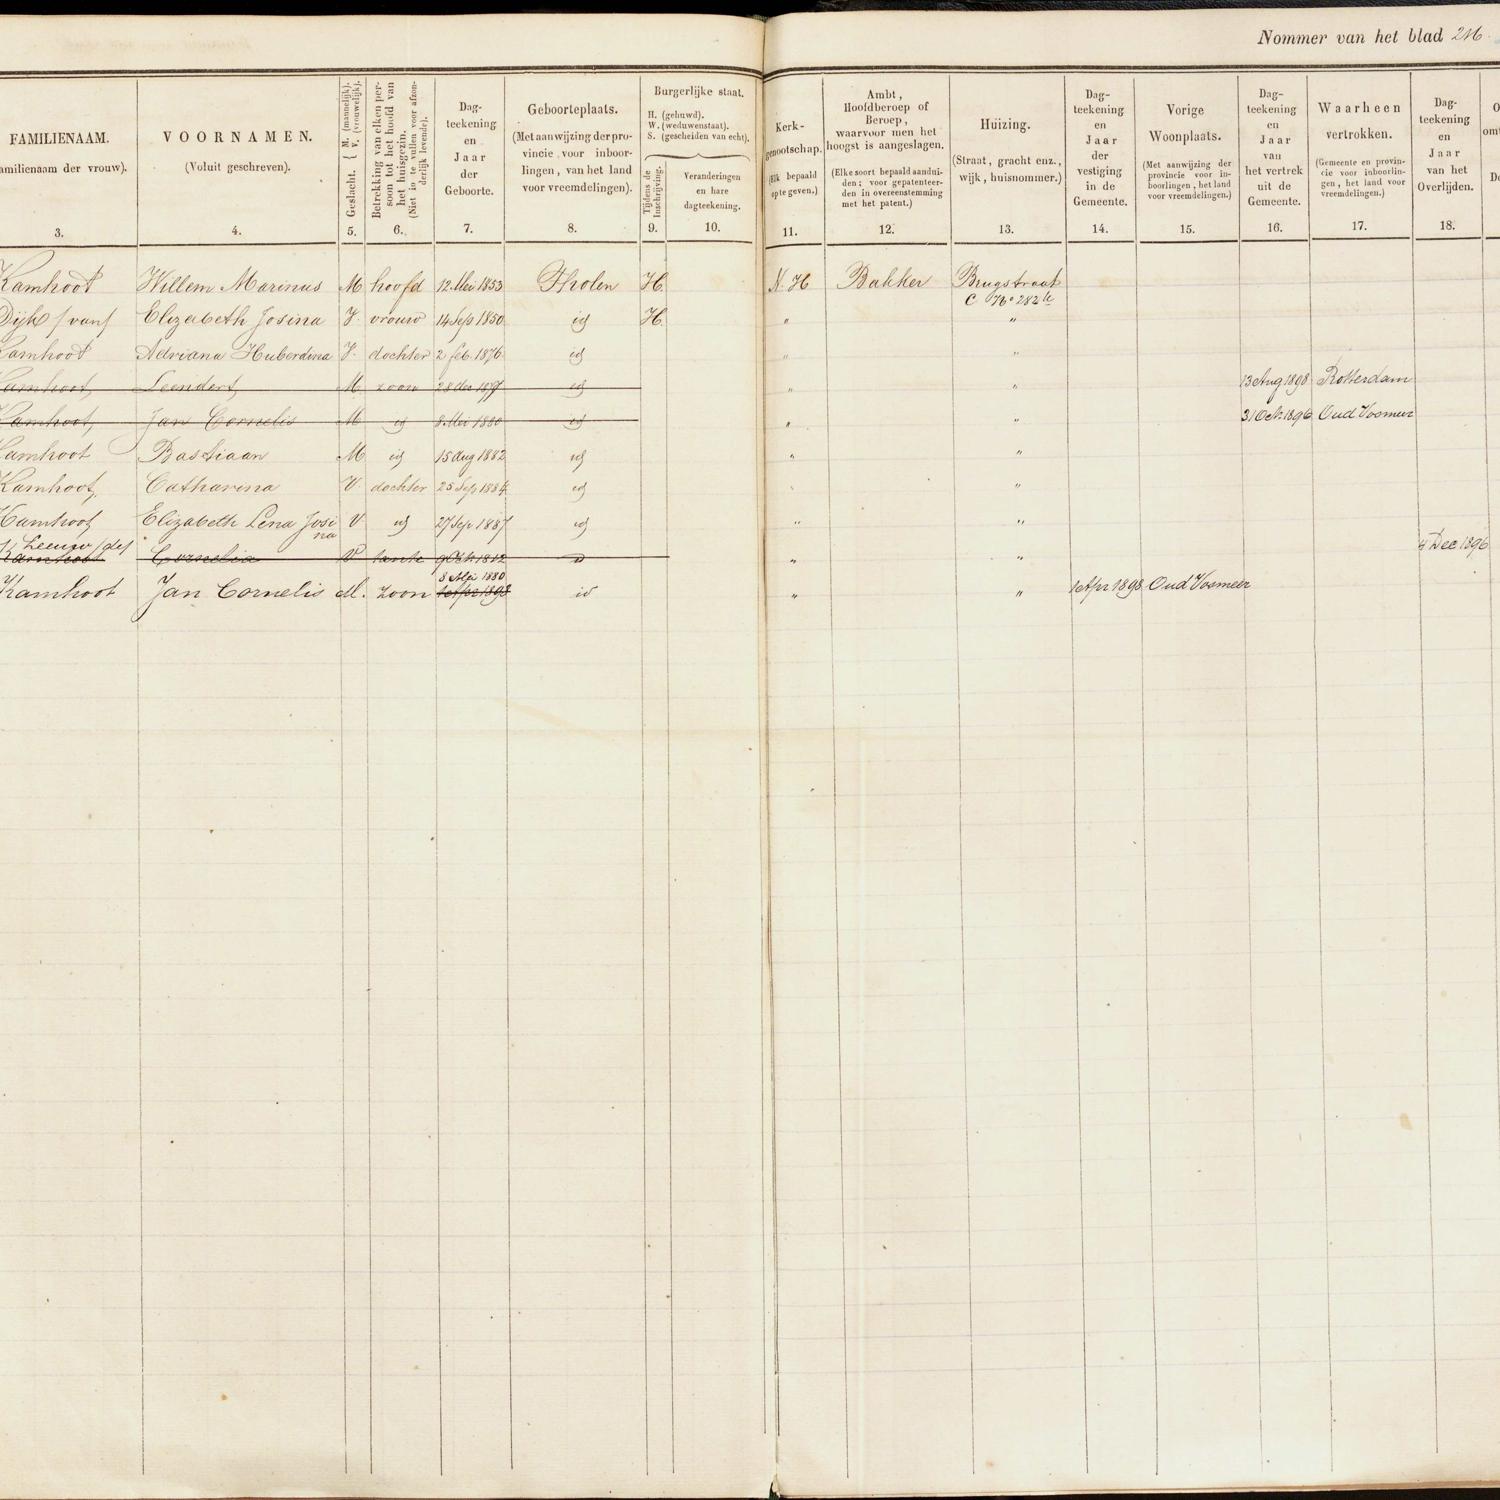 Nommer van het blad
FAMILIENAAM.
amilienaam der vrouw).
3.
VOORNAMEN.
(Voluit geschreven).
4.
Geslacht. { M. (mannelijk). V. (vrouwelijk).
5.
Betrekking van elken per-
soon tot het hoofd van
het huisgezin.
(Niet in te vullen voor afzon-
derlijk levende).
6.
Dag-
teekening
en
Jaar
der
Geboorte.
7.
Geboorteplaats.
(Met aanwijzing der pro-
vincie voor inboor-
lingen, van het land
voor vreemdelingen).
8.
Burgerlijke staat.
H. (gehuwd).
W. (weduwenstaat).
S. (gescheiden van echt).
Tijdens de
Inschrijving.
9.
Veranderingen
en hare
dagteekening.
10.
Kerk-
genootschap.
(Elk bepaald
opte geven.)
11.
Ambt,
Hoofdberoep of
Beroep,
waarvoor men het
hoogst is aangeslagen.
(Elke soort bepaald aandui-
den; voor gepatenteer-
den in overeenstemming
met het patent.)
12.
Huizing.
(Straat, gracht enz.,
wijk, huisnommer.)
13.
Dag-
teekening
en
Jaar
der
vestiging
in de
Gemeente.
14.
Vorige
Woonplaats.
(Met aanwijzing der
provincie voor in-
boorlingen, het land
voor vreemdelingen.)
15.
Dag-
teekening
en
Jaar
van
het vertrek
uit de
Gemeente.
16.
Waarheen
vertrokken.
(Gemeente en provin-
cie voor inboorlin-
gen, het land voor
vreemdelingen.)
17.
Dag-
teekening
en
Jaar
van het
Overlijden.
18.
Kamhoot Willem Marinus M hoofd 12 Mei 1853 Tholen H. N. H Bakker Brugstraat
C No 282
Dijk (van) Elizabeth Josina V. vrouw 14 Sep 1850 id H. " "
Kamhoot Adriana Huberdina V. dochter 2 feb. 1876 id " "
Kamhoot, Leendert M zoon 28 dec id " " 13 Aug 1898 Rotterdam
Kamhoot, Jan Cornelis M id 8 Mei 1880 id " " 31 Oct 1896 Oud Vosmeer
Kamhoot Bastiaan M id 15 Aug 1882 id " "
Kamhoot, Catharina V. dochter 25 Sep 1884 id " "
Kamhoot Elizabeth Lena Josi V id 27 Sep 1887 id " "
na
Leeuw (de)
Kamhoot Cornelia V tante 9 Oct 1812 id " " 4 Dec 1896
8 Mei 1880
Kamhoot Jan Cornelis M. zoon 1 Apr 1898 id " " 1 Apr 1898 Oud Vosmeer